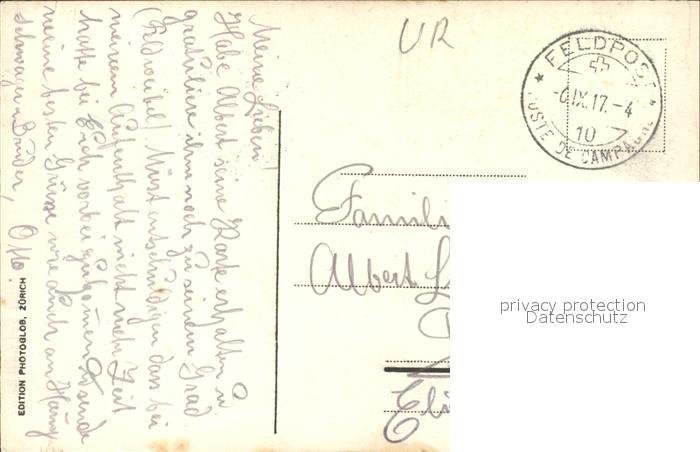 Meine Lieben!
Habe Albert seine Karte erhalten u
gratuliere ihm noch zu seinem Grad
(Feldweibel) Müsst entschuldigen dass bei
meinem Aufenthalt nicht mehr Zeit
hatte bei Euch vorbei zu kommen sende
meine besten Grüsse wie auch an
Schwager u Bruder, Otto.
EDITION PHOTOGLOB, ZÜRICH
UR
FELDPOST
-6.IX.17.-4
10
POSTE DE CAMPAGNE
Famili
Albert L
Eli
privacy protection
Datenschutz